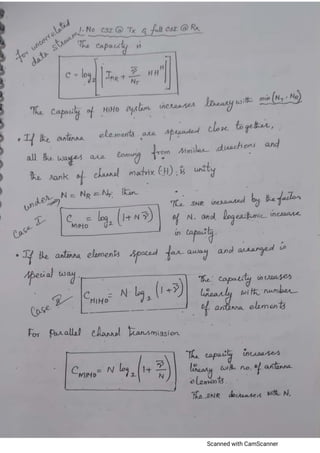 1. No CSI @ Tx & full CSI @ Rx
for uncorrelated data streams
The capacity is
C = log₂ [ | I_{NR} + γ̄/N_T H H^H | ]
The Capacity of MIMO system increases linearly with min(N_T, N_R)
• If the antenna elements are spreaded close together,
all the waves are coming from similar directions and
the rank of channel matrix (H) is unity
under N = N_R = N_T then
Case I
C_MIMO = log₂ (1 + N γ̄)
The SNR increased by the factor
of N. and logarithmic increase
in capacity.
• If the antenna elements spaced far away and arranged in
special way
Case II
C_MIMO = N log₂ (1 + γ̄)
The capacity increases
linearly with number
of antenna elements
For parallel channel transmission
C_MIMO = N log₂ (1 + γ̄/N)
The capacity increases
lineary with no. of antenna
elements.
The SNR decreases with N.
Scanned with CamScanner